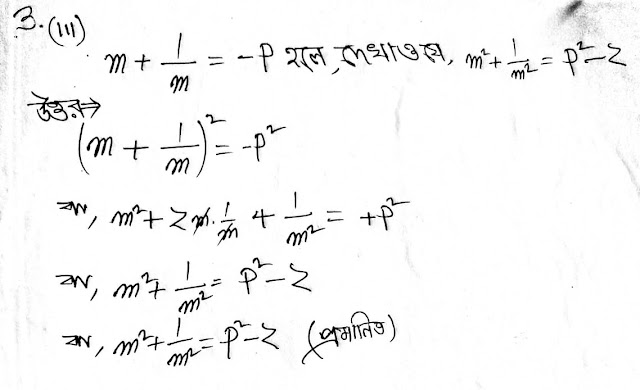 3. (iii)
m + 1/m = -p হলে, দেখাও যে, m² + 1/m² = p² - 2
উত্তর ⇒
(m + 1/m)² = -p²
বা, m² + 2m · 1/m + 1/m² = +p²
বা, m² + 1/m² = p² - 2
বা, m² + 1/m² = p² - 2 (প্রমানিত)